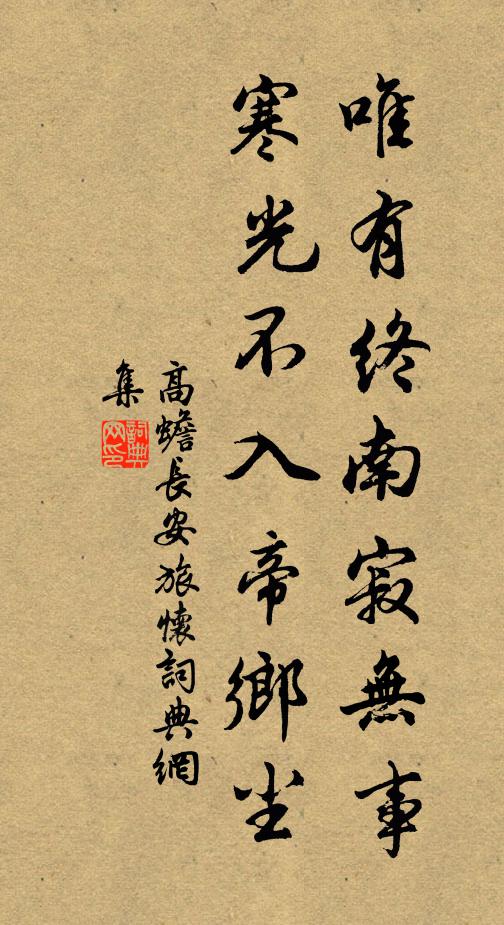 唯有終南寂無事
寒光不入帝鄉尘
高蟾長安旅懷詞典網
集
詞典網印